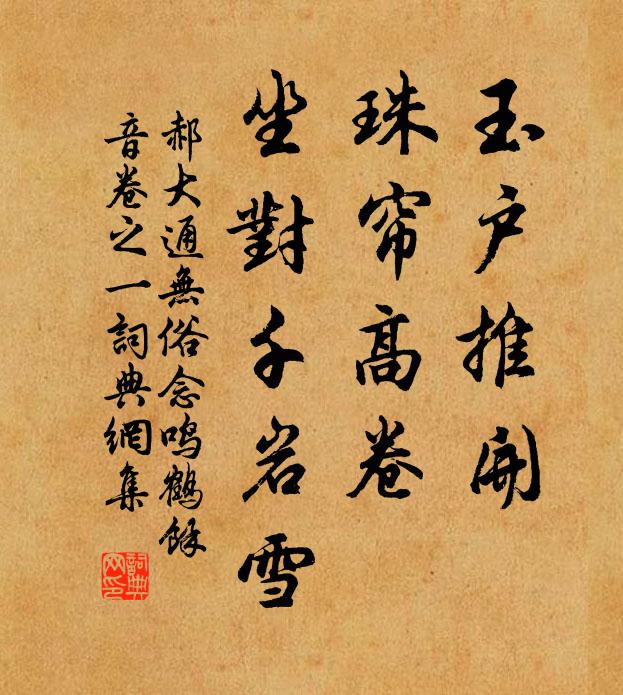 玉户推開
珠帘高卷
坐對千岩雪
郝大通無俗念鳴鶴餘
音卷之一詞典網集
詞典
网印